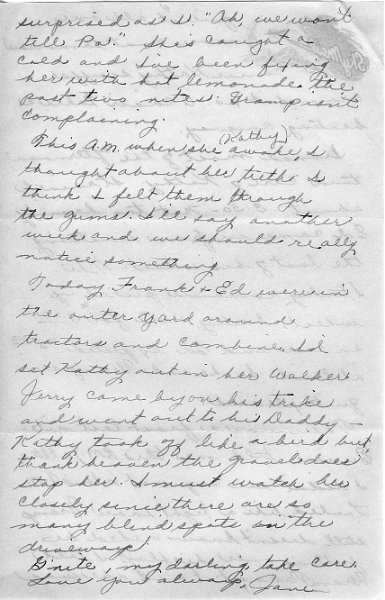 surprised as I. "Ah, we won't
tell Pa." She's caught a
cold and I've been fixing
her with hot lemonade the
past two nites. Gramp isn't
complaining.
This A.M. when she (Kathy) awoke, I
thought about her teeth. I
think I felt them through
the gums. I'll say another
week and we should really
notice something.
Today Frank & Ed were in
the outer yard around
tractors and combine. I'd
set Kathy out in her Walker.
Jerry came by on his trike
and went out to his Daddy –
Kathy took off like a bird but,
thank heaven the gravel does
stop her. I must watch her
closely since there are so
many blind spots in the
driveway!
G'nite, my darling, take care.
Love you always, Jane